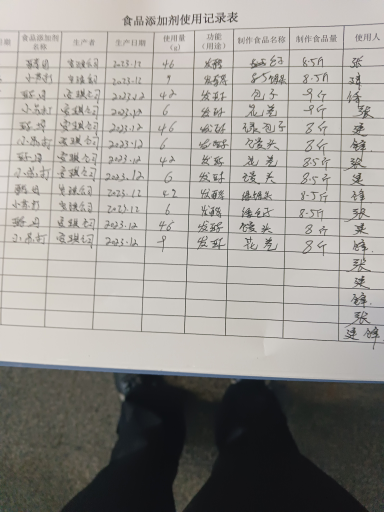 食品添加剂使用记录表
日期 食品添加剂名称 生产者 生产日期 使用量(g) 功能(用途) 制作食品名称 制作食品量 使用人
酵母 安琪公司 2023.12 46 发酵 8.5斤 张
小苏打 安琪公司 2023.12 9 发酵 8.5斤
酵母 安琪公司 2023.12 42 发酵 包子 9斤 锋
小苏打 安琪公司 2023.12 6 发酵 花卷 9斤 张
酵母 安琪公司 2023.12 46 发酵 包子 8斤
小苏打 安琪公司 2023.12 6 发酵 馒头 8斤 锋
酵母 安琪公司 2023.12 42 发酵 花卷 8.5斤 张
小苏打 安琪公司 2023.12 6 发酵 馒头 8.5斤
酵母 安琪公司 2023.12 42 发酵 8.5斤 锋
小苏打 安琪公司 2023.12 6 发酵 8.5斤 张
酵母 安琪公司 2023.12 46 发酵 馒头 8斤
小苏打 安琪公司 2023.12 9 发酵 花卷 8斤 锋
张
锋
张
锋